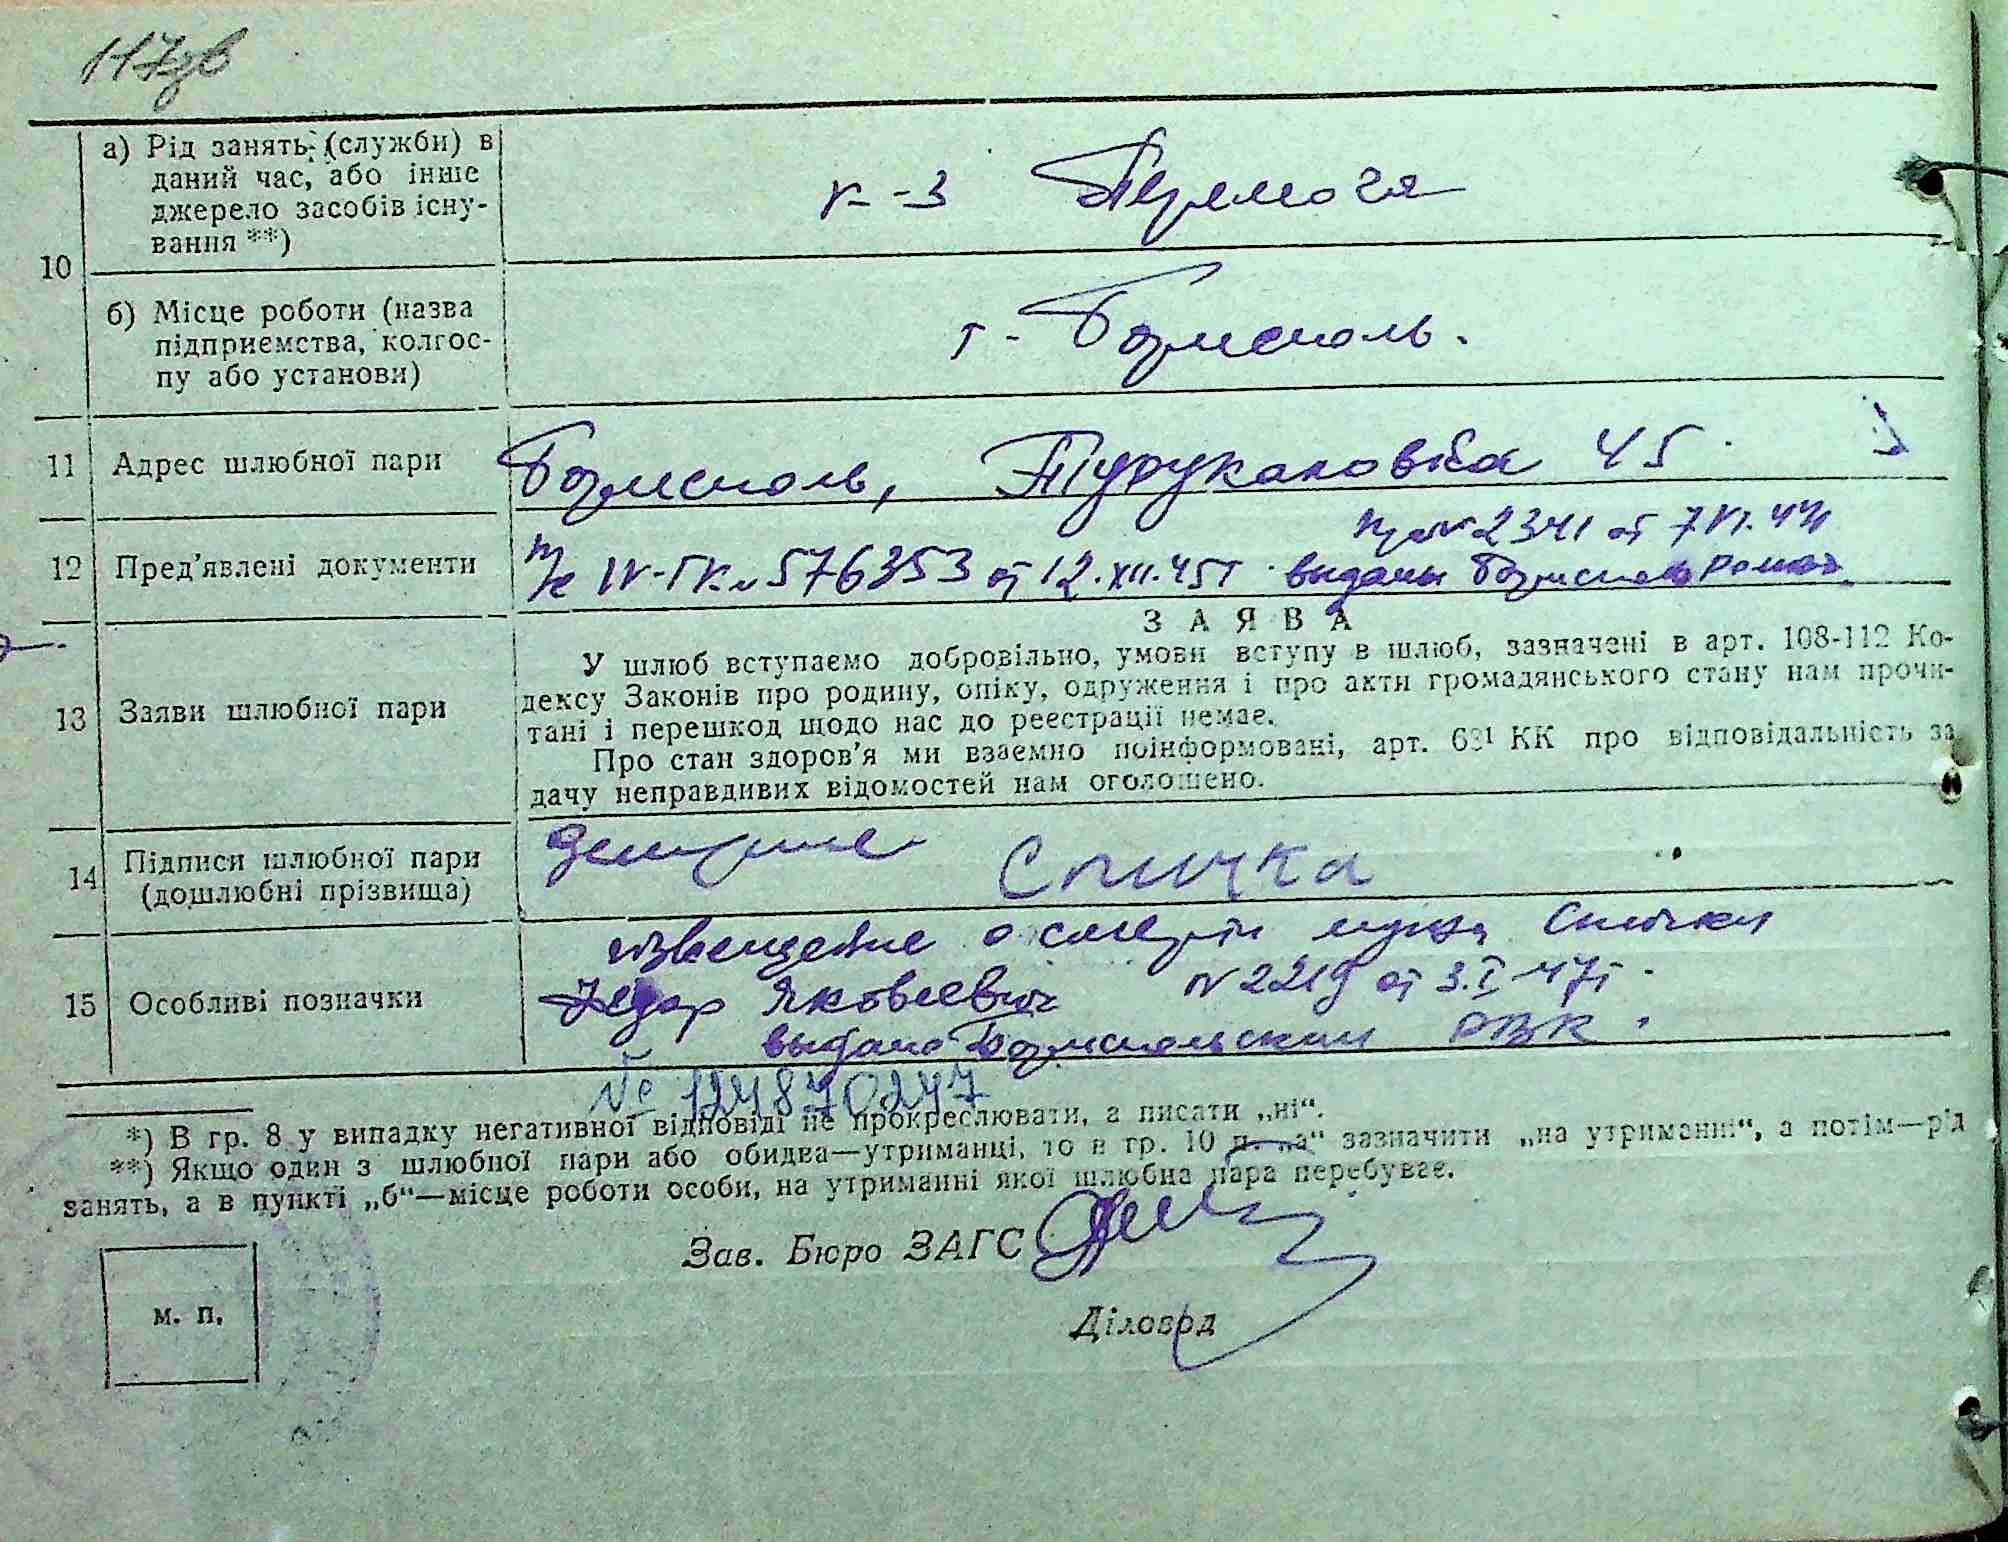 117зв
10
а) Рід занять (служби) в
даний час, або інше
джерело засобів існу-
вання **)
к-з Перемога
б) Місце роботи (назва
підприємства, колгос-
пу або установи)
г. Борисполь.
11 Адрес шлюбної пари
Борисполь, 45
12 Пред'явлені документи
2341 от 7.VI.44
п/с IV-ГК № 576353 от 12.XII.45г. выданы Борисполь
13 Заяви шлюбної пари
ЗАЯВА
У шлюб вступаємо добровільно, умови вступу в шлюб, зазначені в арт. 108-112 Ко-
дексу Законів про родину, опіку, одруження і про акти громадянського стану нам прочи-
тані і перешкод щодо нас до реєстрації немає.
Про стан здоров'я ми взаємно поінформовані, арт. 68¹ КК про відповідальність за
дачу неправдивих відомостей нам оголошено.
14 Підписи шлюбної пари
(дошлюбні прізвища)
Спичка
15 Особливі позначки
извещение о смерти мужа Спички
Федор Яковлевич N 2219 от 3.I-47г.
выдано Бориспольским РВК.
№ 124870247
*) В гр. 8 у випадку негативної відповіді не прокреслювати, а писати „ні“.
**) Якщо один з шлюбної пари або обидва—утриманці, то в гр. 10 п. „а“ зазначити „на утриманні“, а потім—рід
занять, а в пункті „б“—місце роботи особи, на утриманні якої шлюбна пара перебуває.
Зав. Бюро ЗАГС
м. п.
Діловод